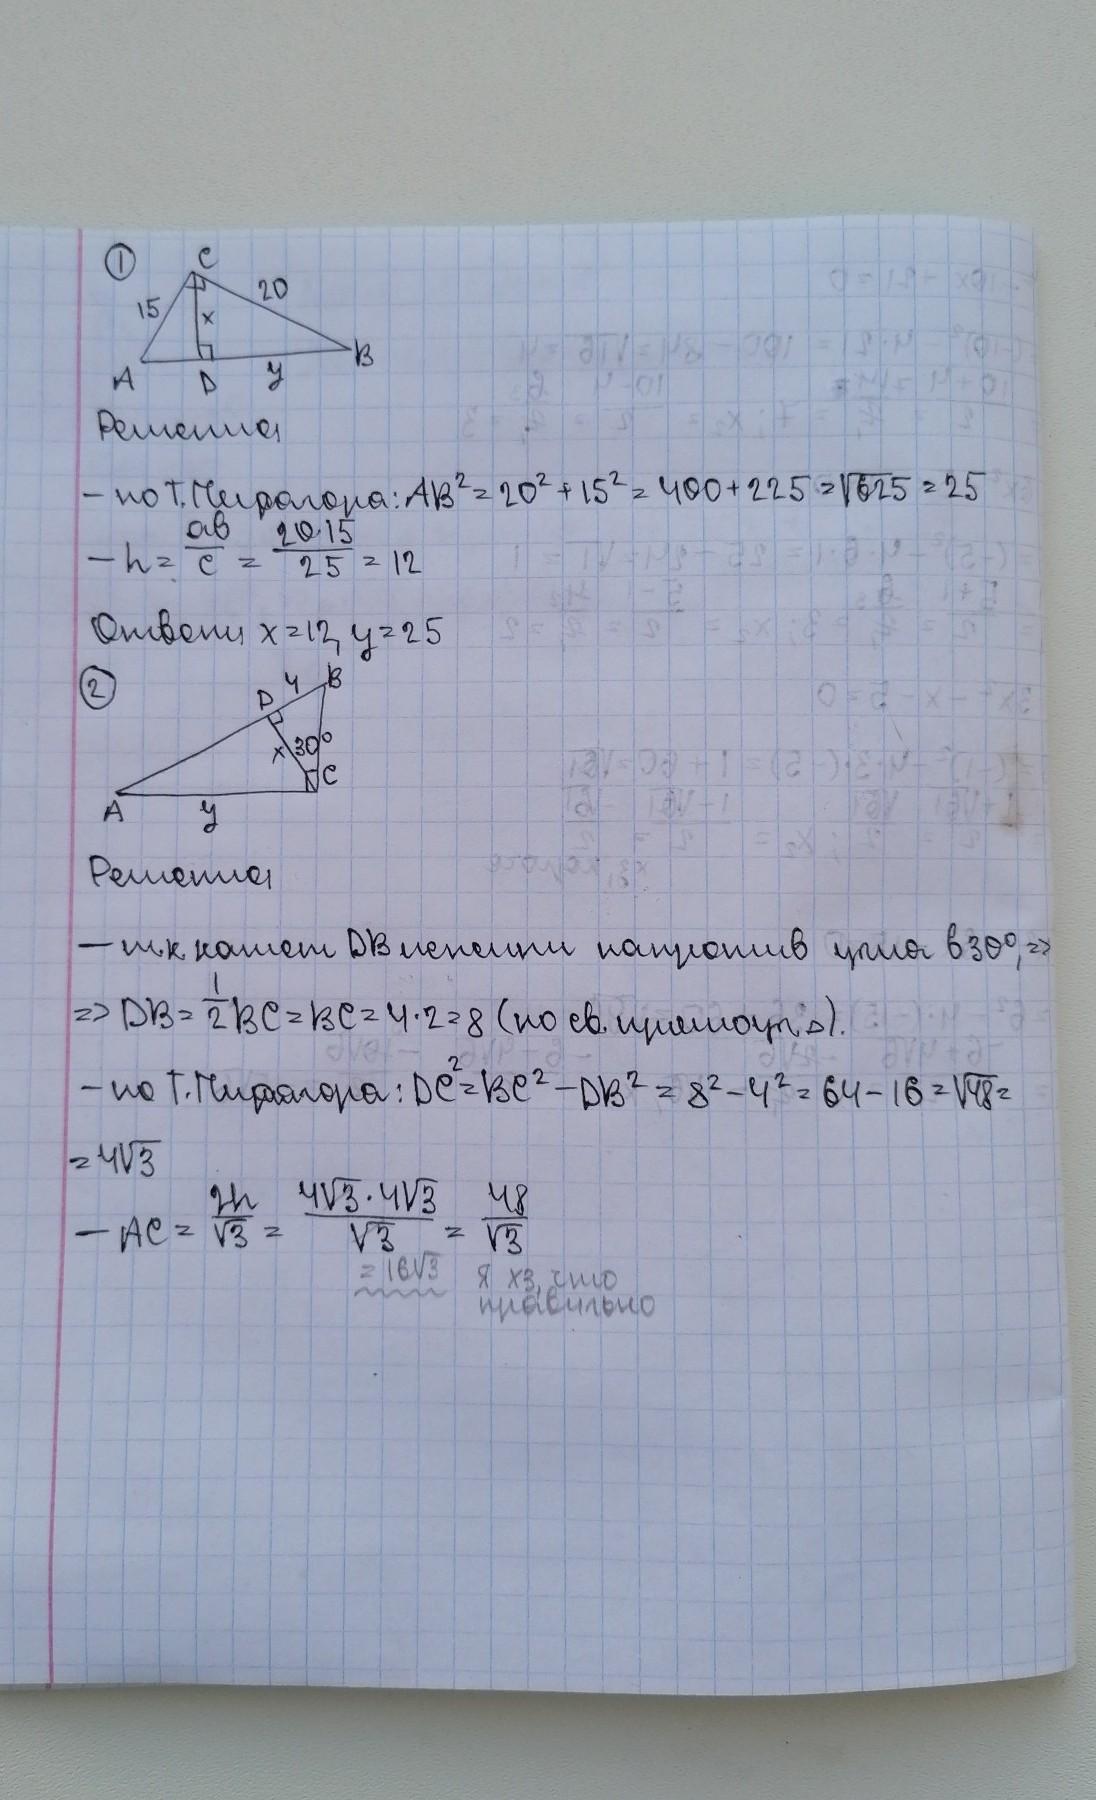 1
C
15
20
x
A
D
y
B
Решение
- по Т. Пифагора: AB² = 20² + 15² = 400 + 225 = √625 = 25
- h = ab/c = 20·15/25 = 12
Ответ: x = 12, y = 25
2
D 4 B
x 30°
C
A
y
Решение
- т.к. катет DB лежит напротив угла в 30°, =>
=> DB = 1/2 BC = BC = 4·2 = 8 (по св. прямоуг. △).
- по Т. Пифагора: DC² = BC² - DB² = 8² - 4² = 64 - 16 = √48 =
= 4√3
- AC = 2h/√3 = 4√3·4√3/√3 = 48/√3
= 16√3 я хз, что
правильно